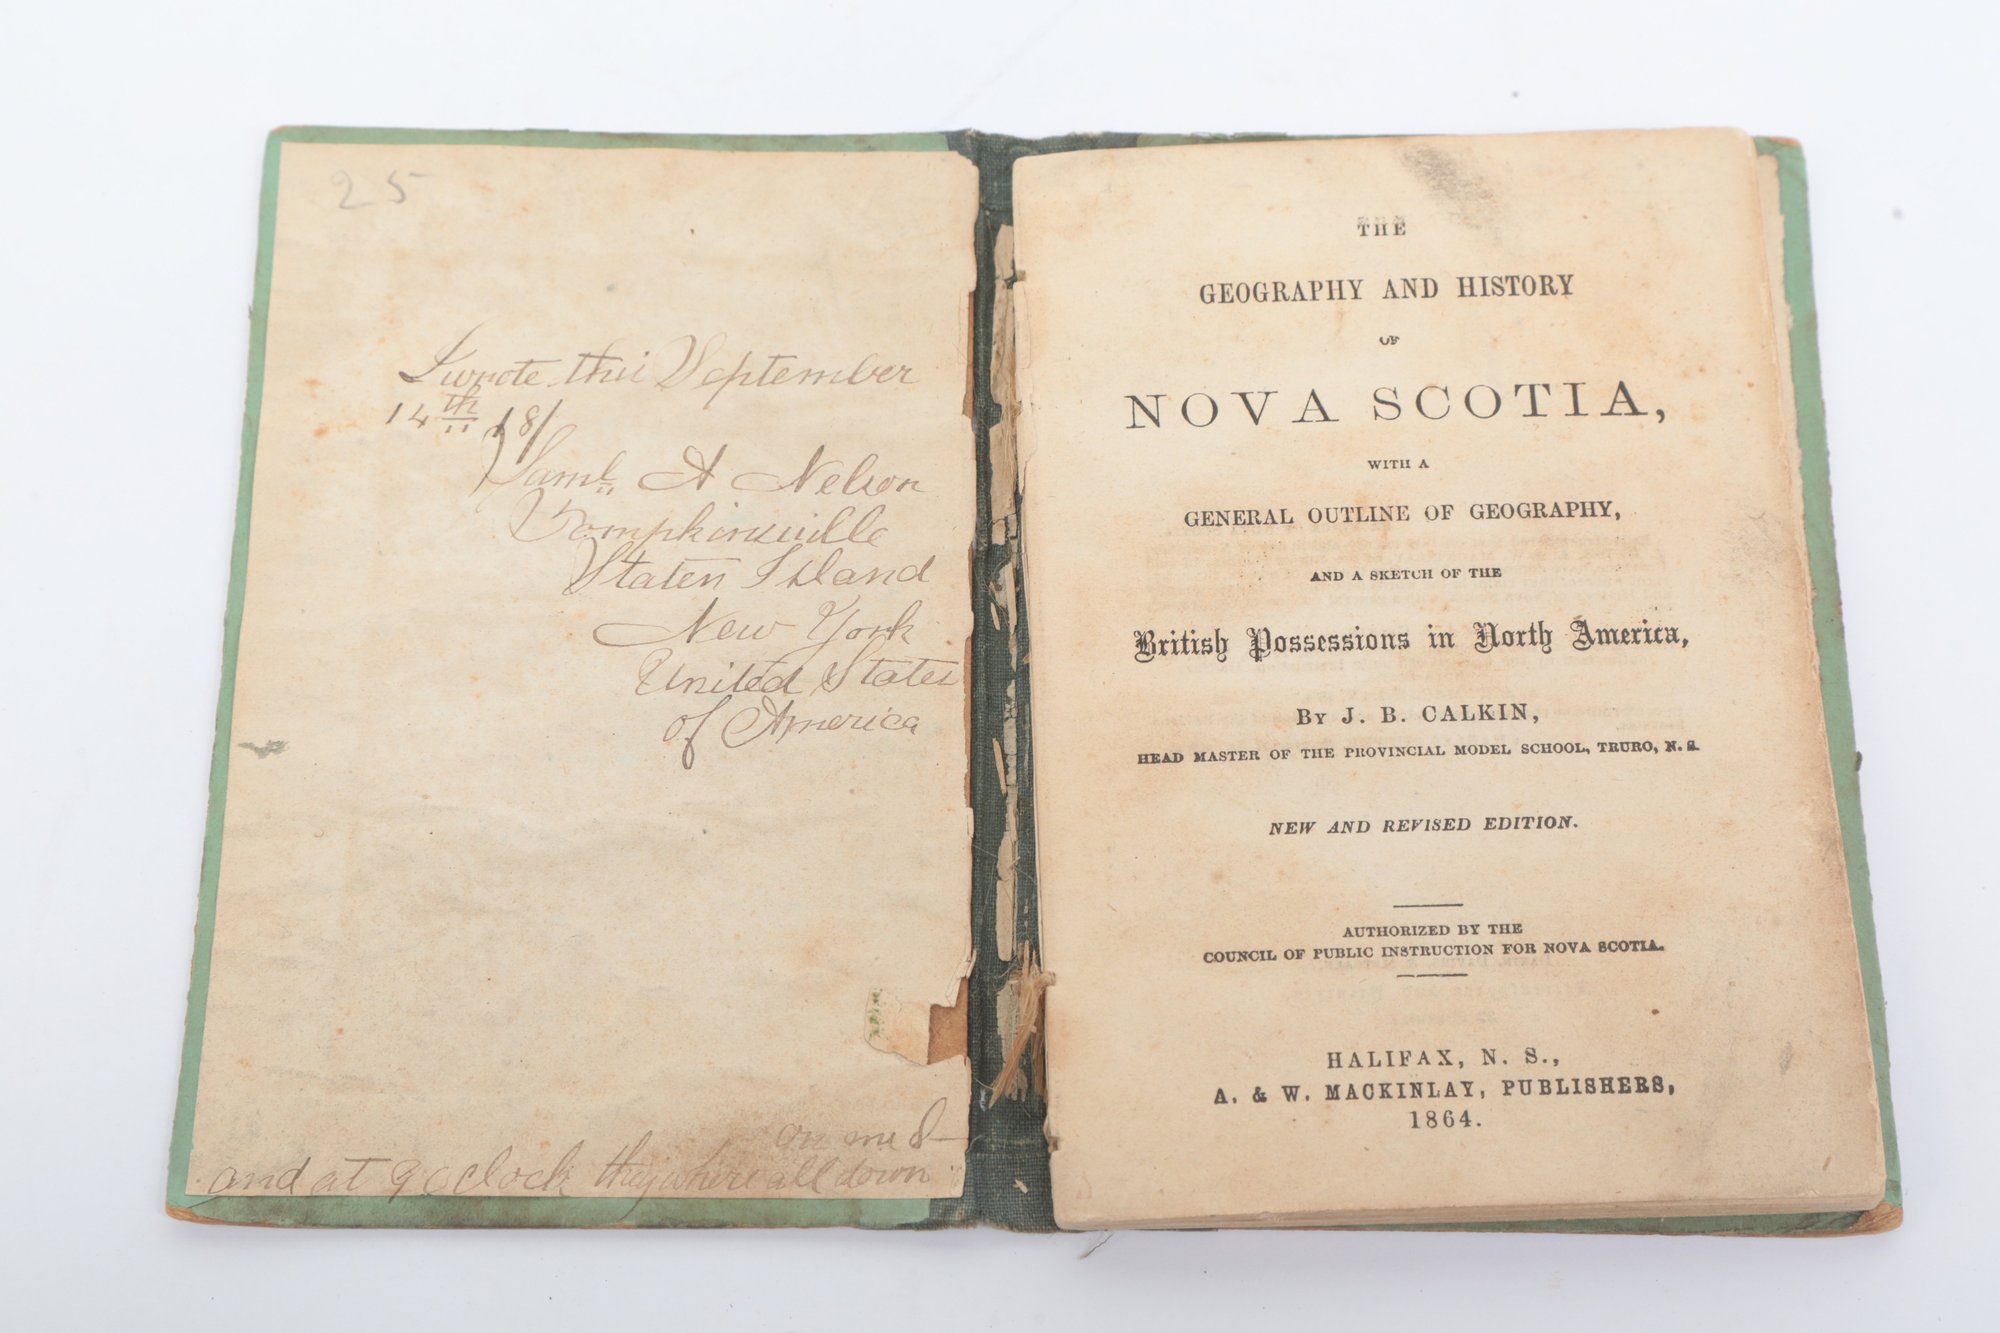 25
I wrote this September
14th 18/
Saml A Nelson
Tompkinsville
Staten Island
New York
United States
of America
on me I
and at 9 o clock they where all down
THE
GEOGRAPHY AND HISTORY
OF
NOVA SCOTIA,
WITH A
GENERAL OUTLINE OF GEOGRAPHY,
AND A SKETCH OF THE
British Possessions in North America,
BY J. B. CALKIN,
HEAD MASTER OF THE PROVINCIAL MODEL SCHOOL, TRURO, N. S.
NEW AND REVISED EDITION.
AUTHORIZED BY THE
COUNCIL OF PUBLIC INSTRUCTION FOR NOVA SCOTIA.
HALIFAX, N. S.,
A. & W. MACKINLAY, PUBLISHERS,
1864.